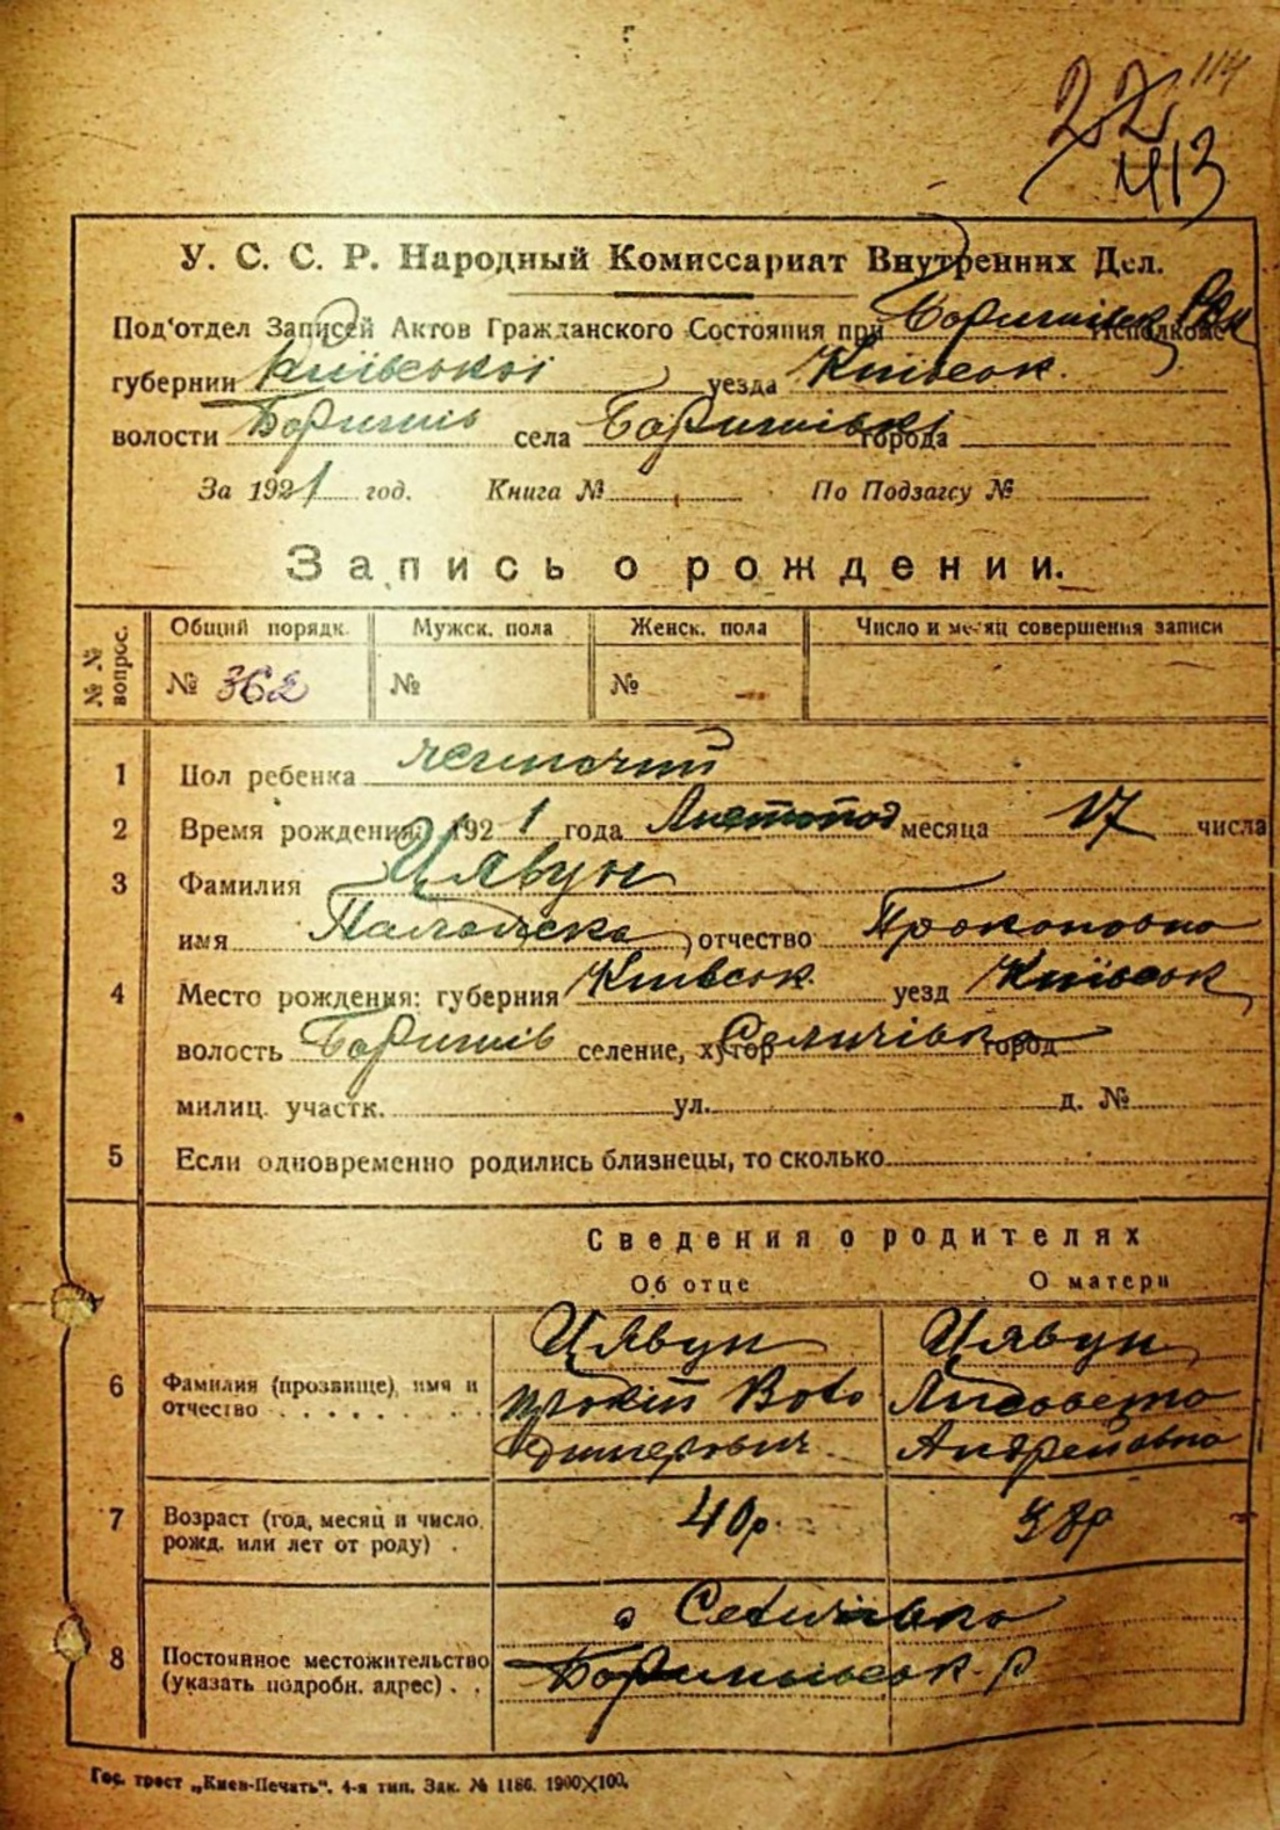 22 114
413
У. С. С. Р. Народный Комиссариат Внутренних Дел.
Под'отдел Записей Актов Гражданского Состояния при Баришівськ Исполкоме
губернии Київської уезда Київськ.
волости Баришів села Баришівкі города
За 1921 год. Книга № По Подзагсу №
Запись о рождении.
№ № вопрос. Общий порядк. Мужск. пола Женск. пола Число и месяц совершения записи
№ 362 № №
1 Пол ребенка
2 Время рождения: 1921 года Листопад месяца 17 числа
3 Фамилия Цявун
имя отчество Прокоповна
4 Место рождения: губерния Київськ. уезд Київськ
волость Баришів селение, хутор Селичівка город
милиц. участк. ул. д. №
5 Если одновременно родились близнецы, то сколько
Сведения о родителях
Об отце О матери
Цявун Цявун
6 Фамилия (прозвище), имя и отчество Лисавета
Андреївна
7 Возраст (год, месяц и число рожд. или лет от роду) 40р. 38р
с Селичівка
8 Постоянное местожительство (указать подробн. адрес) Баришівськ. р
Гос. трест „Киев-Печать". 4-я тип. Зак. № 1186. 1900×100.